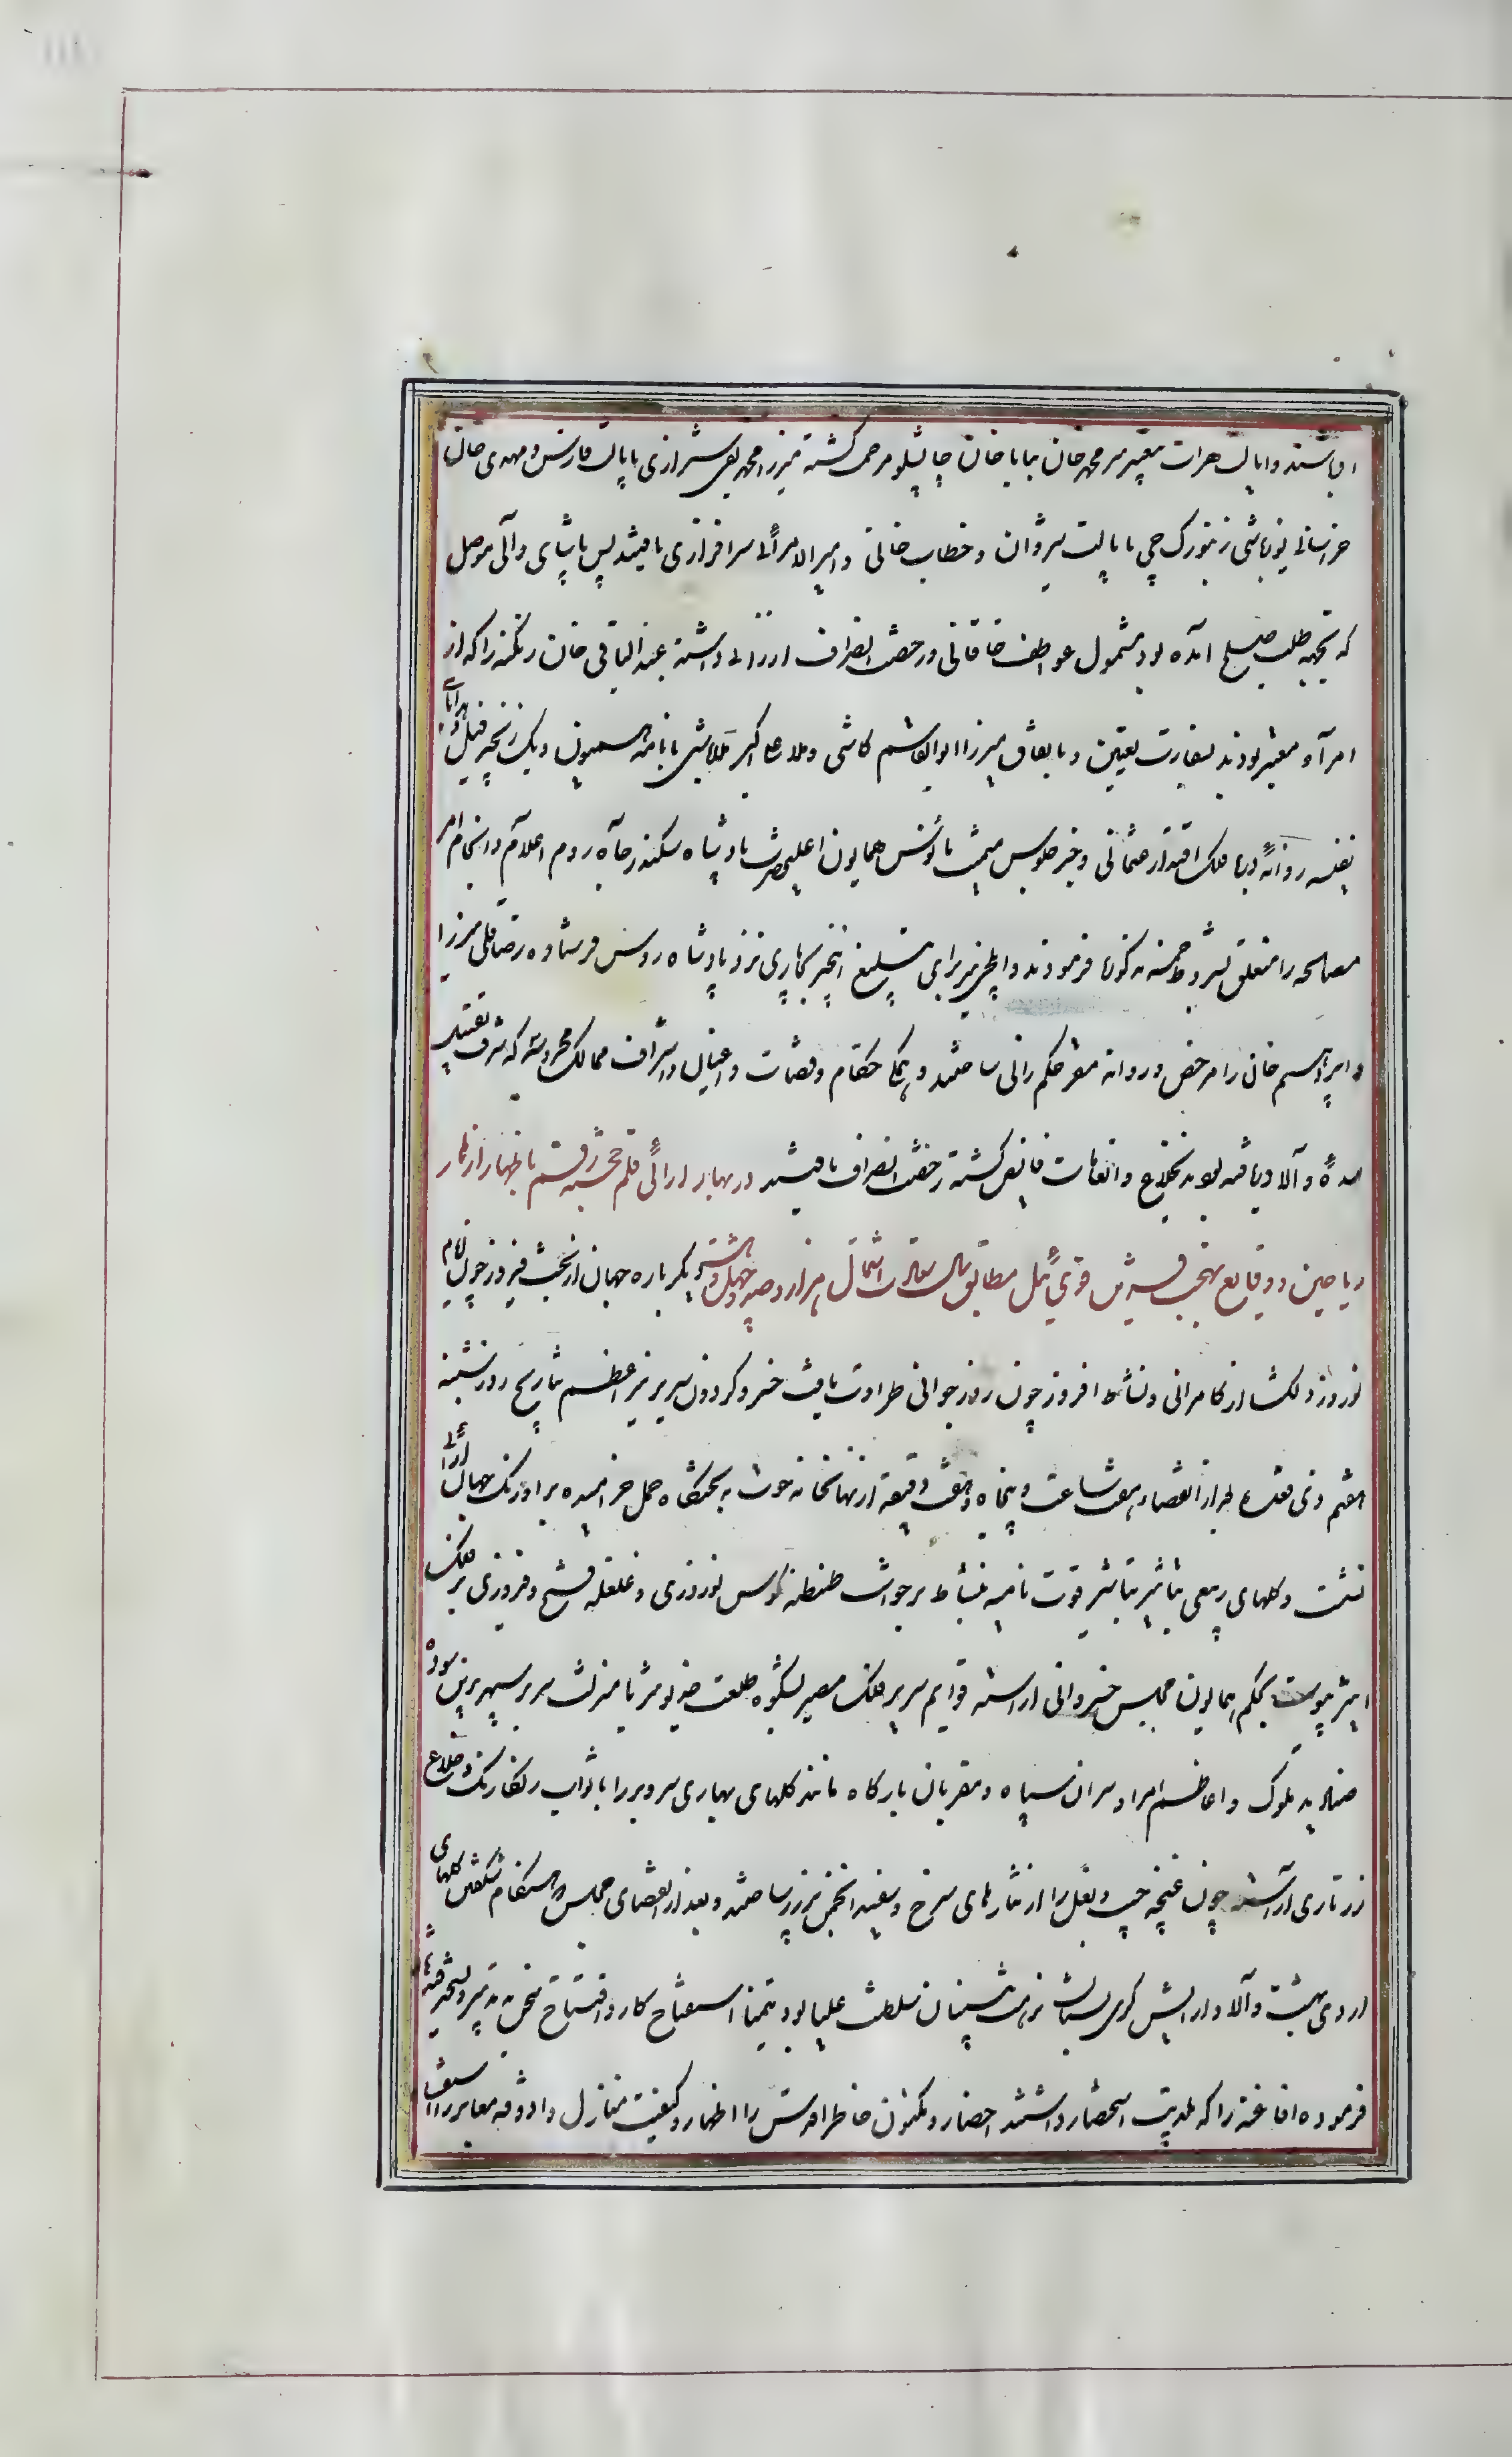 او باشند و ایالت هرات بغیر میر محمد خان ببابا خان چاپشلو مرحمت گشته میرزا محمد تقی شیرازی بایالت فارس و مهدی خان
خراسانی یوزباشی زنبورک چی بایالت شیروان و خطاب خانی و امیرالامرائی سرافرازی یافتند پس پاشای والی موصل
که بجهة طلب صلح آمده بود مشمول عواطف خاقانی و رخصت انصراف ارزانی داشته عبدالباقی خان زنگنه را که از
امراء معتبر بودند بسفارت تعیین و باتفاق میرزا ابوالقاسم کاشی و ملا علی اکبر ملاباشی با نامه همیون و یک زنجیر فیل و هدایای
نفیسه روانهٔ دربار فلک اقتدار عثمانی و خبر جلوس میمنت مأنوس همایون اعلیحضرت پادشاه سکندر جاه روم اعلام و انجام امر
مصالحه را متعلق بشروط خمسه مذکوره فرمودند و ایلچی نیز برای تبلیغ اینخبر بهاری نزد پادشاه روس فرستاده رضاقلی میرزا
و ابراهیم خان را مرخص و روانه مقر حکم رانی ساختند و همگی حکام و قضات و اعیان و اشراف ممالک محروسه که شرف تقبیل
سدهٔ والا دریافته بودند بخلاع و انعامات فایض گشته رخصت انصراف یافتند در بهار ارائی قلم خجسته رقم باظهار ازهار
ریاحین و وقایع بهجت قرین توی ئیل مطابق سال سعادت اشتمال هزار و صد و چهل و هشت دیگر باره جهان از بخت فیروز چون ایام
نوروز دلگشا از کامرانی و نشاط افروز چون روز جوانی طراوت یافت خسرو گردون سریر نیر اعظم بتاریخ روز شنبه
هفتم ذی قعده بعد از انقضاء هفت ساعت و پنجاه و هفت دقیقه از نهانخانه حوت به تختگاه حمل خرامیده بر اورنک جهان ارائی
نشست و گلهای ربیعی بتأثیر تباشیر قوت نامیه بنشاط برخواست طنطنه کوس نوروزی و غلغله فتح و فیروزی بر فلک
اثیر پیوست بحکم همایون مجلس خسروانی اراسته قوایم سریر فلک مصیر بشکوه طلعت خدیو ثریا منزلت سر بر سپهر برین سوده
صنادید ملوک و اعاظم امرا و سران سپاه و مقربان بارگاه مانند گلهای بهاری سر و بر را باثواب رنگارنک و خلاع
زرتاری اراسته چون غنچه جیب و بغل را از نثارهای سرخ و سفید انجمن پر زر ساختند و بعد از انقضای مجلس و هنگام شگفتن گلهای
اردی بهشت والا و ارایش گوی بستان نزهت شبستان سلطنت علیا بود تیمنا استفتاح کار و افتتاح سخن به تدبیر و تسخیر قندهار
فرموده افاغنه را که بلدیت استحضار داشتند احضار و مکنون خاطر اقدس را اظهار و کیفیت منازل و اذوقه معابر را استفسار